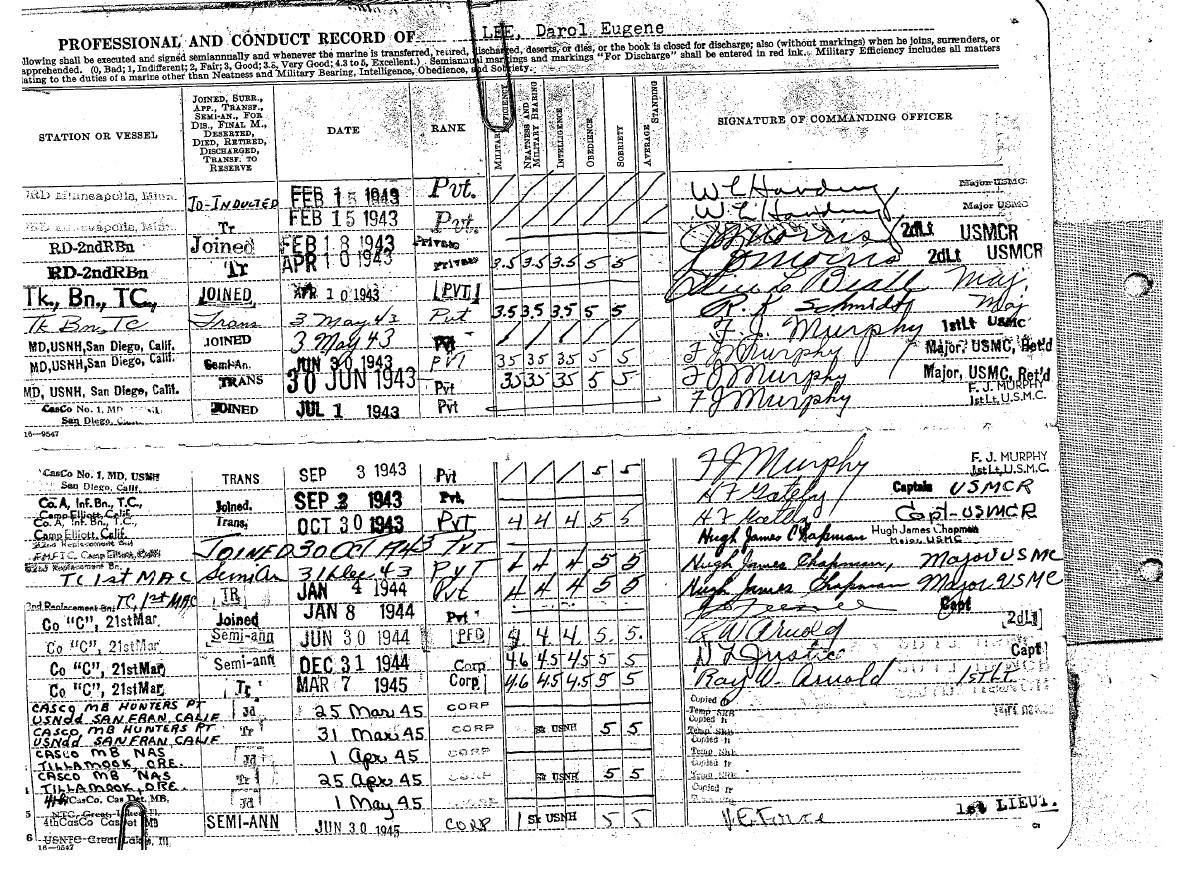 LEE, Darol Eugene
PROFESSIONAL AND CONDUCT RECORD OF
llowing shall be executed and signed semiannually and whenever the marine is transferred, retired, discharged, deserts, or dies, or the book is closed for discharge; also (without markings) when he joins, surrenders, or
apprehended. (0, Bad; 1, Indifferent; 2, Fair; 3, Good; 3.5, Very Good; 4.3 to 5, Excellent.) Semiannual markings and markings "For Discharge" shall be entered in red ink. Military Efficiency includes all matters
lating to the duties of a marine other than Neatness and Military Bearing, Intelligence, Obedience, and Sobriety.
STATION OR VESSEL JOINED, SURR., APP., TRANSF., SEMI-AN., FOR DIS., FINAL M., DESERTED, DIED, RETIRED, DISCHARGED, TRANSF. TO RESERVE DATE RANK MILITARY EFFICIENCY NEATNESS AND MILITARY BEARING INTELLIGENCE OBEDIENCE SOBRIETY AVERAGE STANDING SIGNATURE OF COMMANDING OFFICER
Minneapolis, Minn. JD-INDUCTED FEB 15 1943 Pvt. W L Harding Major USMC
Minneapolis, Minn. Tr FEB 15 1943 Pvt. W L Harding Major USMC
RD-2ndRBn Joined FEB 18 1943 Private 2dLt USMCR
RD-2ndRBn Tr APR 10 1943 Private 3.5 3.5 3.5 5 5 2dLt USMCR
Tk., Bn., TC, JOINED APR 10 1943 PVT Beall Maj.
Tk Bn, TC Trans 3 May 43 Pvt 3.5 3.5 3.5 5 5 R. K Schmidt Maj
MD,USNH,San Diego, Calif. JOINED 3 May 43 Pvt F. J. Murphy 1stLt USMC
MD,USNH,San Diego, Calif. Semi-An. JUN 30 1943 PVT 35 35 35 5 5 F J Murphy Major, USMC, Ret'd
MD, USNH, San Diego, Calif. TRANS 30 JUN 1943 Pvt 35 35 35 5 5 F J Murphy Major, USMC, Ret'd
CasCo No. 1, MD JOINED JUL 1 1943 Pvt F J Murphy F. J. MURPHY 1stLt, U.S.M.C.
San Diego,
16—9547
CasCo No. 1, MD, USNH TRANS SEP 3 1943 Pvt 5 5 F J Murphy F. J. MURPHY 1stLt, U.S.M.C.
San Diego, Calif.
Co. A, Inf. Bn., T.C., Joined. SEP 3 1943 Pvt. H F Gately Captain USMCR
Camp Elliott, Calif.
Co. A, Inf. Bn., T.C., Trans. OCT 30 1943 PVT 4 4 4 5 5 H F Gately Capt-USMCR
Camp Elliott, Calif.
Replacement Bn JOINED 30 OCT 1943 PVT Hugh James Chapman Hugh James Chapman Major, USMC
Camp Elliott,
Replacement Bn.
TC 1st MAC SemiAn 31 Dec 43 PVT 4 4 4 5 5 Hugh James Chapman, Major USMC
2nd Replacement Bn. TC, 1st MAC TR JAN 4 1944 Pvt 4 4 4 5 5 Hugh James Chapman Major USMC
Co "C", 21stMar. Joined JAN 8 1944 Pvt Capt
Co "C", 21stMar. Semi-ann JUN 30 1944 PFC 4. 4. 4. 5. 5. R W Arnold 2dLt
Co "C", 21stMar, Semi-ann DEC 31 1944 Corp 4.6 4.5 4.5 5 5 Justice Capt
Co "C", 21stMar, Tr MAR 7 1945 Corp 4.6 4.5 4.5 5 5 Ray W. Arnold 1stLt.
CASCO MB HUNTERS PT Jd 25 Mar 45 CORP Copied fr
USNdd SAN FRAN CALIF Temp SRB
CASCO MB HUNTERS PT Tr 31 Mar 45 CORP Sk USNH 5 5 Copied fr
USNdd SAN FRAN CALIF Temp SRB
CASCO MB NAS Jd 1 Apr 45 CORP Copied fr
TILLAMOOK, ORE. Temp SRB
CASCO MB NAS Tr 25 Apr 45 Sk USNH 5 5 Copied fr
TILLAMOOK, ORE. Temp SRB
4th CasCo, Cas Det, MB, Jd 1 May 45 Copied fr
4thCasCo Cas Det MB SEMI-ANN JUN 30 1945 CORP Sk USNH 5 5 1st LIEUT.
USNTC Great Lakes, Ill
16—9547